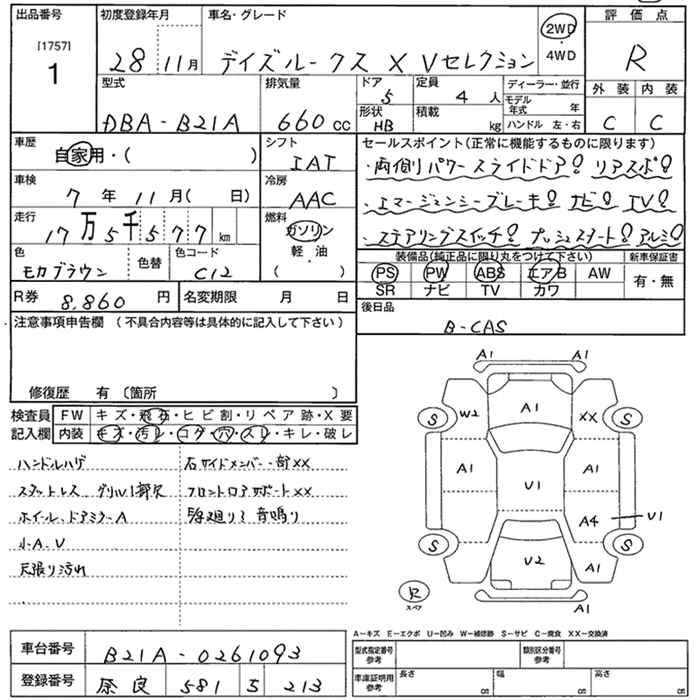 出品番号
[1757]
1
初度登録年月
28 11月
車名・グレード
デイズルークス X Vセレクション
2WD
・
4WD
評価点
R
外装 内装
C C
型式
DBA-B21A
排気量
660 cc
ドア
5
定員
4 人
形状
HB
積載
kg
ディーラー・並行
モデル年式 年
ハンドル 左・右
車歴
自家用・( )
シフト
IAT
車検
7 年 11 月( 日)
冷房
AAC
走行
17万5千577 km
燃料
ガソリン
軽油
( )
色
モカブラウン
色替
色コード
C12
セールスポイント(正常に機能するものに限ります)
・両側パワースライドドア! リアスポ!
・エマージェンシーブレーキ! ナビ! TV!
・ステアリングスイッチ! プッシュスタート! アルミ!
装備品(純正品に限り丸をつけて下さい)
新車保証書
PS PW ABS エアB AW
SR ナビ TV カワ
有・無
R券
8,860 円
名変期限 月 日
後日品
B-CAS
注意事項申告欄 (不具合内容等は具体的に記入して下さい)
修復歴 有 〔箇所 〕
検査員
記入欄
FW キズ・飛石・ヒビ割・リペア跡・X要
内装 キズ・汚レ・コゲ・穴・スレ・キレ・破レ
ハンドルハゲ
スタットレス グリル1部欠
ホイール、ドアミラーA
小A、U
天張り汚れ
右サイドメンバー一部XX
フロントロアサポートXX
駆廻り? 音鳴り
A1 A1
W2 A1 XX
S S
A1 U1 A1
A4 U1
S S
U2 A1
R
スペア
A1
A-キズ E-エクボ U-凹み W-補修跡 S-サビ C-腐食 XX-交換済
車台番号
B21A-0261093
登録番号
奈良 581 う 213
型式指定番号
参考
類別区分番号
参考
車庫証明用
参考
長さ cm
幅 cm
高さ cm